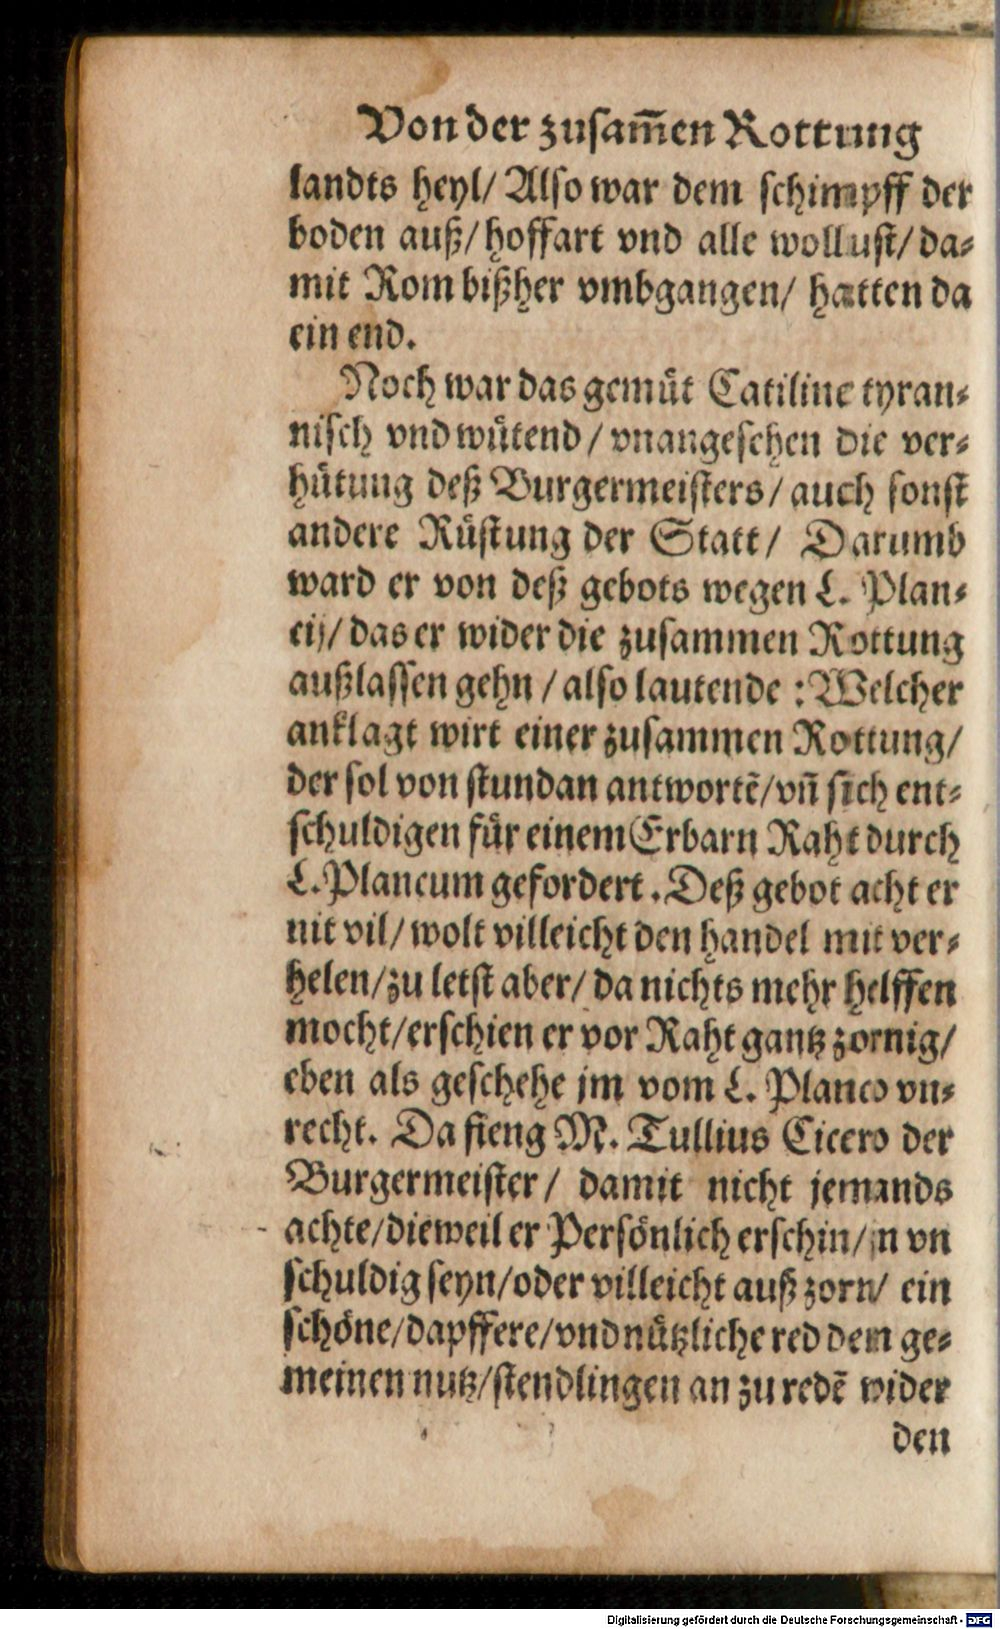 Von der zusam̃en Rottung
landts heyl/ Also war dem schimpff der
boden auß/ hoffart vnd alle wollust/ da⸗
mit Rom bißher vmbgangen/ hatten da
ein end.
Noch war das gemuͤt Catiline tyran⸗
nisch vnd wuͤtend / vnangesehen die ver⸗
huͤtung deß Burgermeisters/ auch sonst
andere Ruͤstung der Statt/ Darumb
ward er von deß gebots wegen L. Plan⸗
cij/ das er wider die zusammen Rottung
außlassen gehn / also lautende : Welcher
anklagt wirt einer zusammen Rottung/
der sol von stundan antwortẽ/ vñ sich ent⸗
schuldigen fuͤr einem Erbarn Raht durch
L. Plancum gefordert. Deß gebot acht er
nit vil/ wolt villeicht den handel mit ver⸗
helen/ zu letst aber/ da nichts mehr helffen
mocht/ erschien er vor Raht gantz zornig/
eben als geschehe jm vom L. Planco vn⸗
recht. Da fieng M. Tullius Cicero der
Burgermeister/ damit nicht jemands
achte/ dieweil er Persoͤnlich erschin/ jn vn
schuldig seyn/ oder villeicht auß zorn/ ein
schoͤne/ dapffere/ vnd nuͤtzliche red dem ge⸗
meinen nutz/ stendlingen an zu redẽ wider
den
Digitalisierung gefördert durch die Deutsche Forschungsgemeinschaft - DFG